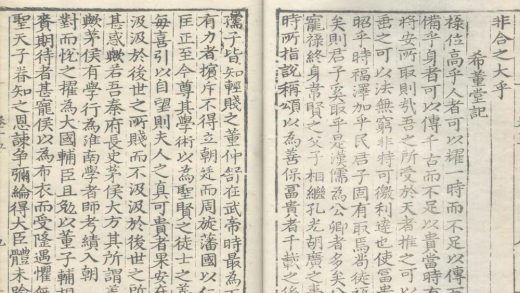 非合之大乎
希董堂記
操位高乎人者可以耀一時而不足以傳百
備乎身者可以傳千古而不足以貴當時有
將安所取則哉吾之所受於天者推之可以
垂之可以法無窮非特可徼利達也使富貴
昭乎時福澤加乎民君子固有取焉尚徒
矣則君子奚取乎是漢儒為公卿者多矣公
寵祿終身韋賢之父子相繼孔光胡廣之
時所指說稱頌以為善保富貴者千載之後
孺子皆知輕賤之董仲舒在武帝時最為不
有力者擯斥不得立朝廷而周旋藩國以
臣正至今尊其學術以為聖賢之徒士之
每喜引以自望則夫人之真可貴者果安在
汲汲於後世之所賤而不汲汲於後世之所
甚惑歟若吾秦府長史茅侯大方其所謂
歟茅侯有學行為淮南學者師考績入朝
對而悅之擢為大國輔臣且勉以董子輔相
賚期待者甚寵侯以為布衣而受隆遇懼無
聖天子眷知之恩諫爭彌綸得大臣體未踰